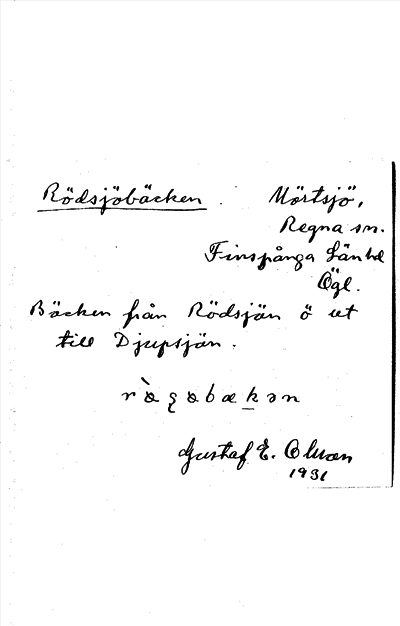 Rödsjöbäcken. Mörtsjö,
Regna sn.
Finspånga länhd
Ögl.
Bäcken från Rödsjön ö ut
till Djupsjön.
Gustaf E. Olman
1931